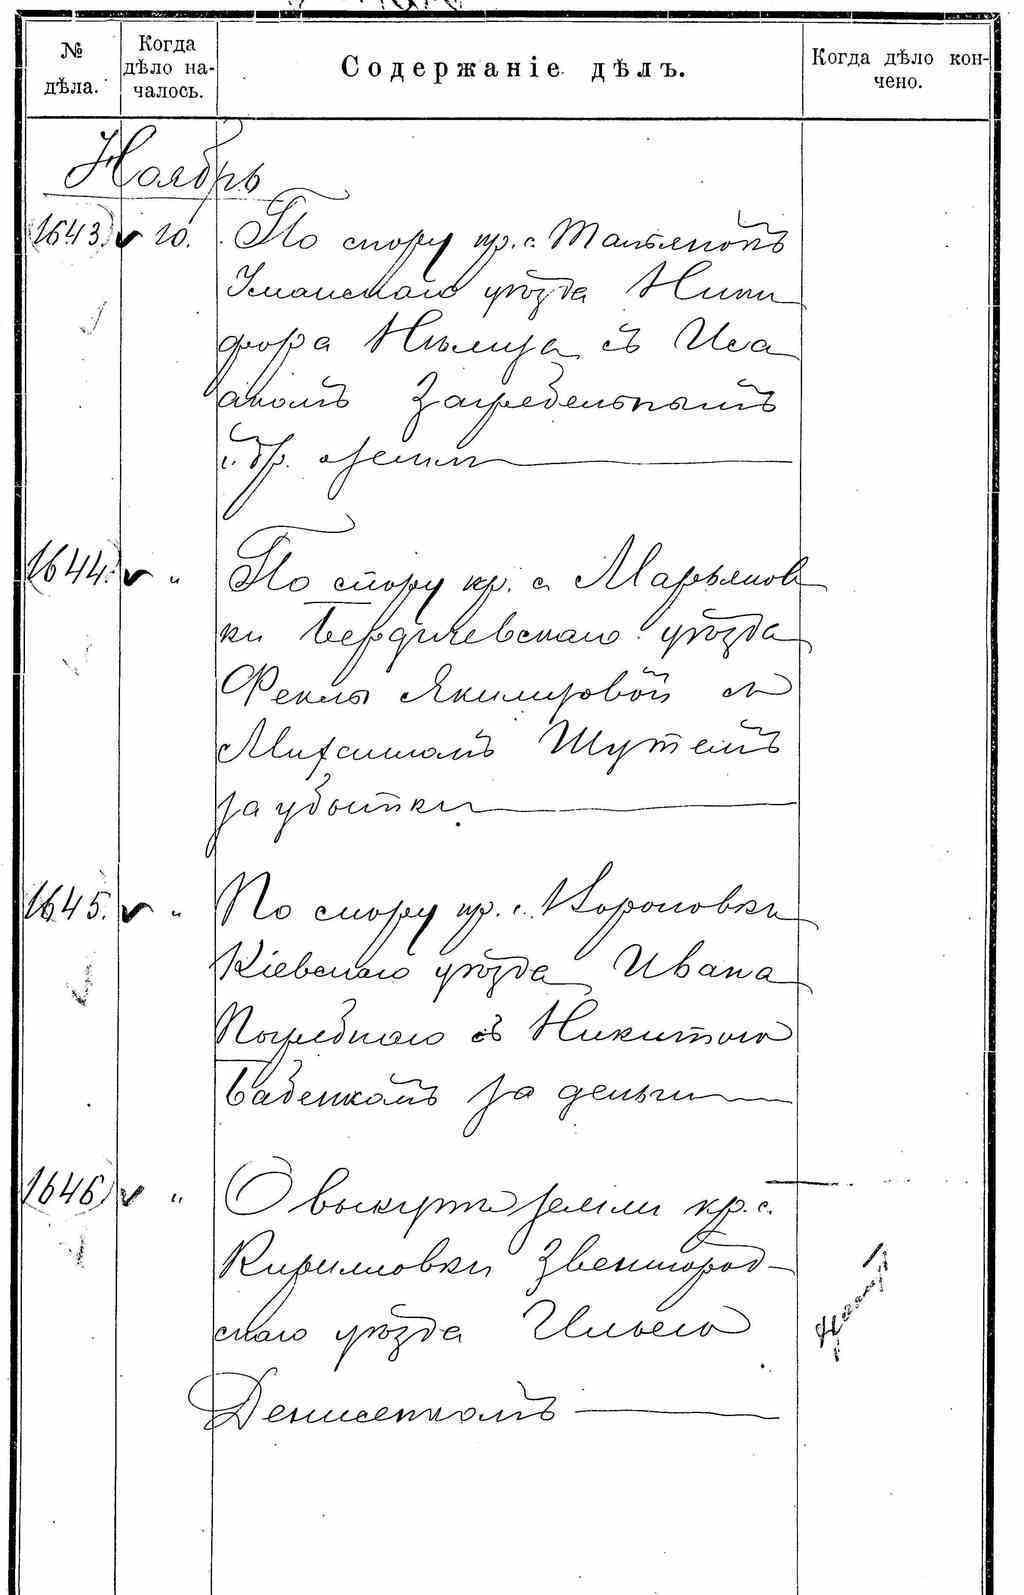 № дѣла.
Когда дѣло на-
чалось.
Содержаніе дѣлъ.
Когда дѣло кон-
чено.
Ноябрь
1643. 10. По спору кр. с. Тальянокъ
Уманскаго уѣзда Ники
фора Нѣмца съ Иса
акомъ Загребельнымъ
и др. земли
1644. " По спору кр. с. Марьянов
ки Бердичевскаго уѣзда
Феклы Якимцовой съ
Михаиломъ Шутемъ
за убытки
1645. " По спору кр. с. Вороновки
Кіевскаго уѣзда Ивана
Погребнаго съ Никитою
Бабенкомъ за деньги
1646 " О выкупѣ земли кр. с.
Кирилловки Звенигород-
скаго уѣзда Ильею
Денисенкомъ